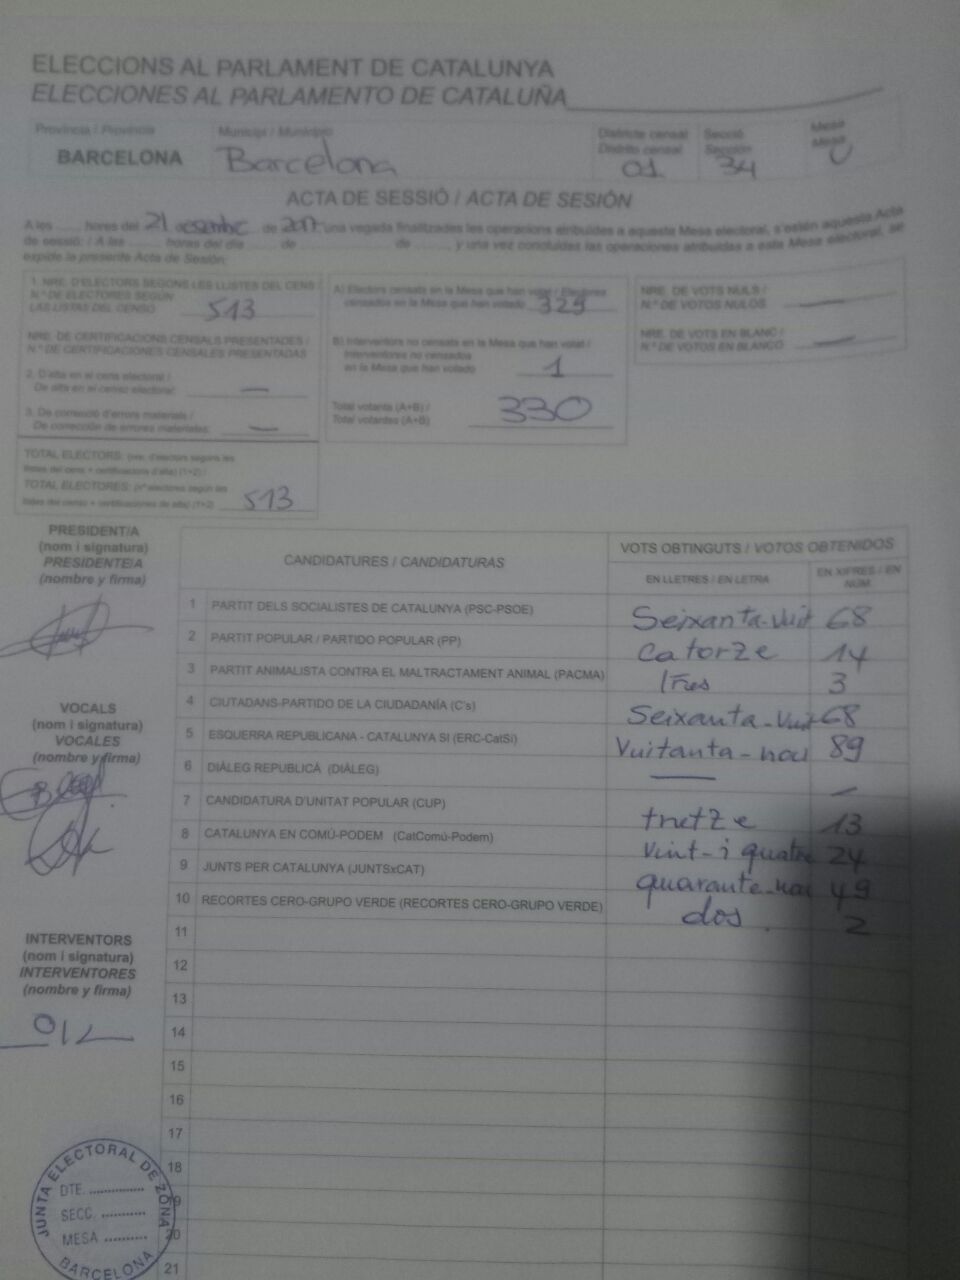 ELECCIONS AL PARLAMENT DE CATALUNYA
ELECCIONES AL PARLAMENTO DE CATALUÑA
Província / Provincia
Municipi / Municipio
Districte censal
Distrito censal
Secció
Sección
Mesa
Mesa
BARCELONA
Barcelona
01
34
U
ACTA DE SESSIÓ / ACTA DE SESIÓN
A les ...... hores del 21 desembre de 2017 una vegada finalitzades les operacions atribuïdes a aquesta Mesa electoral, s'estén aquesta Acta
de sessió: / A las ...... horas del día ...... de ...... de ...... y una vez concluidas las operaciones atribuidas a esta Mesa electoral, se
expide la presente Acta de Sesión:
1. NRE. D'ELECTORS SEGONS LES LLISTES DEL CENS
N.º DE ELECTORES SEGÚN
LAS LISTAS DEL CENSO
513
NRE. DE CERTIFICACIONS CENSALS PRESENTADES /
N.º DE CERTIFICACIONES CENSALES PRESENTADAS
2. D'alta en el cens electoral /
De alta en el censo electoral: —
3. De correcció d'errors materials /
De corrección de errores materiales: —
TOTAL ELECTORS: (nre. d'electors segons les
llistes del cens + certificacions d'alta) (1+2) /
TOTAL ELECTORES: (nº electores según las
listas del censo + certificaciones de alta) (1+2) 513
A) Electors censats en la Mesa que han votat / Electores
censados en la Mesa que han votado 329
B) Interventors no censats en la Mesa que han votat /
Interventores no censados
en la Mesa que han votado 1
Total votants (A+B) /
Total votantes (A+B) 330
NRE. DE VOTS NULS /
N.º DE VOTOS NULOS —
NRE. DE VOTS EN BLANC /
N.º DE VOTOS EN BLANCO —
PRESIDENT/A
(nom i signatura)
PRESIDENTE/A
(nombre y firma)
VOCALS
(nom i signatura)
VOCALES
(nombre y firma)
INTERVENTORS
(nom i signatura)
INTERVENTORES
(nombre y firma)
CANDIDATURES / CANDIDATURAS
VOTS OBTINGUTS / VOTOS OBTENIDOS
EN LLETRES / EN LETRA
EN XIFRES / EN NÚM.
1 PARTIT DELS SOCIALISTES DE CATALUNYA (PSC-PSOE) Seixanta-vuit 68
2 PARTIT POPULAR / PARTIDO POPULAR (PP) Catorze 14
3 PARTIT ANIMALISTA CONTRA EL MALTRACTAMENT ANIMAL (PACMA) Tres 3
4 CIUTADANS-PARTIDO DE LA CIUDADANÍA (C's) Seixanta-vuit 68
5 ESQUERRA REPUBLICANA - CATALUNYA SI (ERC-CatSí) Vuitanta-nou 89
6 DIÀLEG REPUBLICÀ (DIÀLEG) — —
7 CANDIDATURA D'UNITAT POPULAR (CUP) tretze 13
8 CATALUNYA EN COMÚ-PODEM (CatComú-Podem) Vint-i quatre 24
9 JUNTS PER CATALUNYA (JUNTSxCAT) quaranta-nou 49
10 RECORTES CERO-GRUPO VERDE (RECORTES CERO-GRUPO VERDE) dos. 2
11
12
13
14
15
16
17
18
19
20
21
JUNTA ELECTORAL DE ZONA
DTE. ..............
SECC. ...........
MESA ...........
BARCELONA